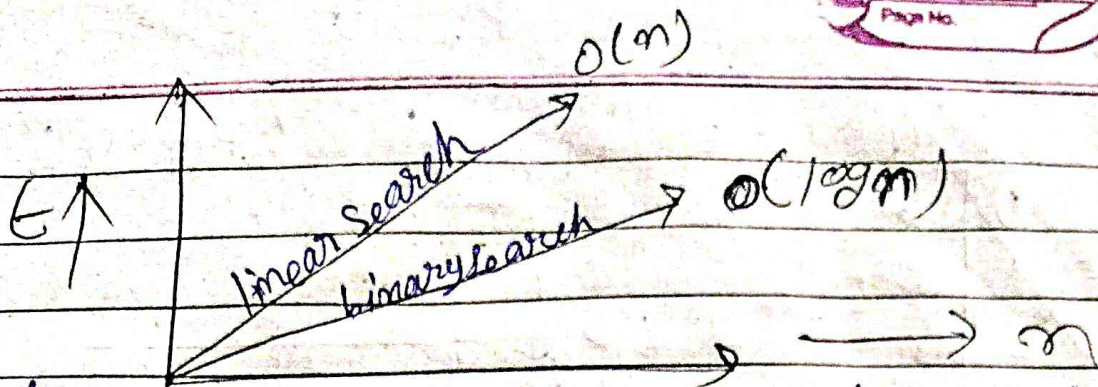 Page No.
O(n)
t
linear search
O(logn)
binary search
n